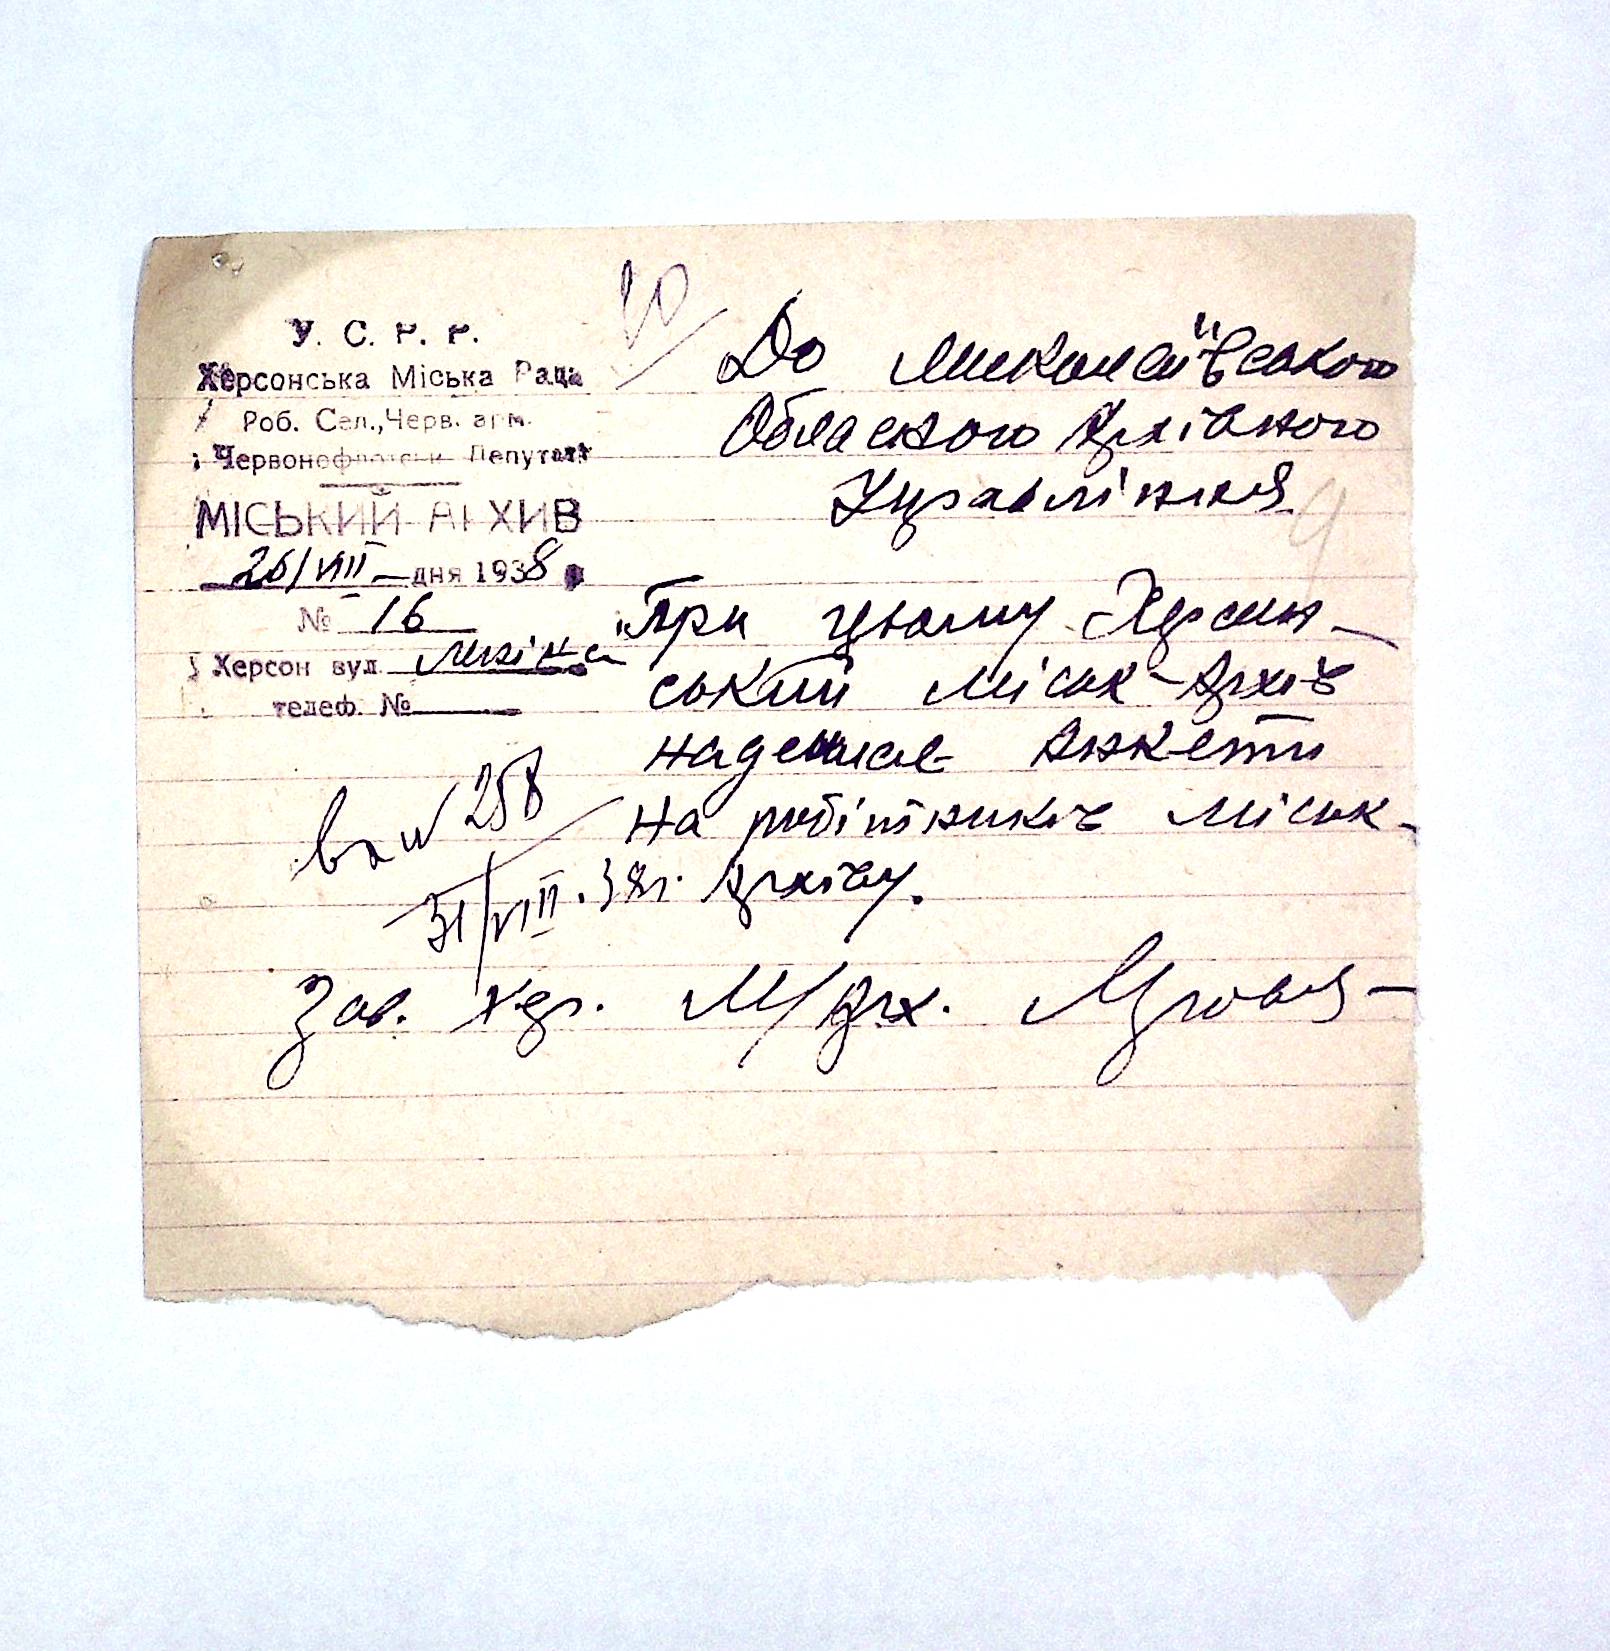 10
У. С. Р. Р.
Херсонська Міська Рада
Роб. Сел., Черв. арм.
і Червонофлотськ Депутат
МІСЬКИЙ АРХИВ
26/VIII – дня 1938
№ 16
Херсон вул. Леніна
телеф. №
До Миколаївського
Обласного Архівного
Управління
При цьому Херсон-
ський Міськ-Архів
надсилає Анкети
на робітників Міськ-
Архіву.
вх № 258
31/VIII. 38 г.
Зав. Хер. М/Арх.